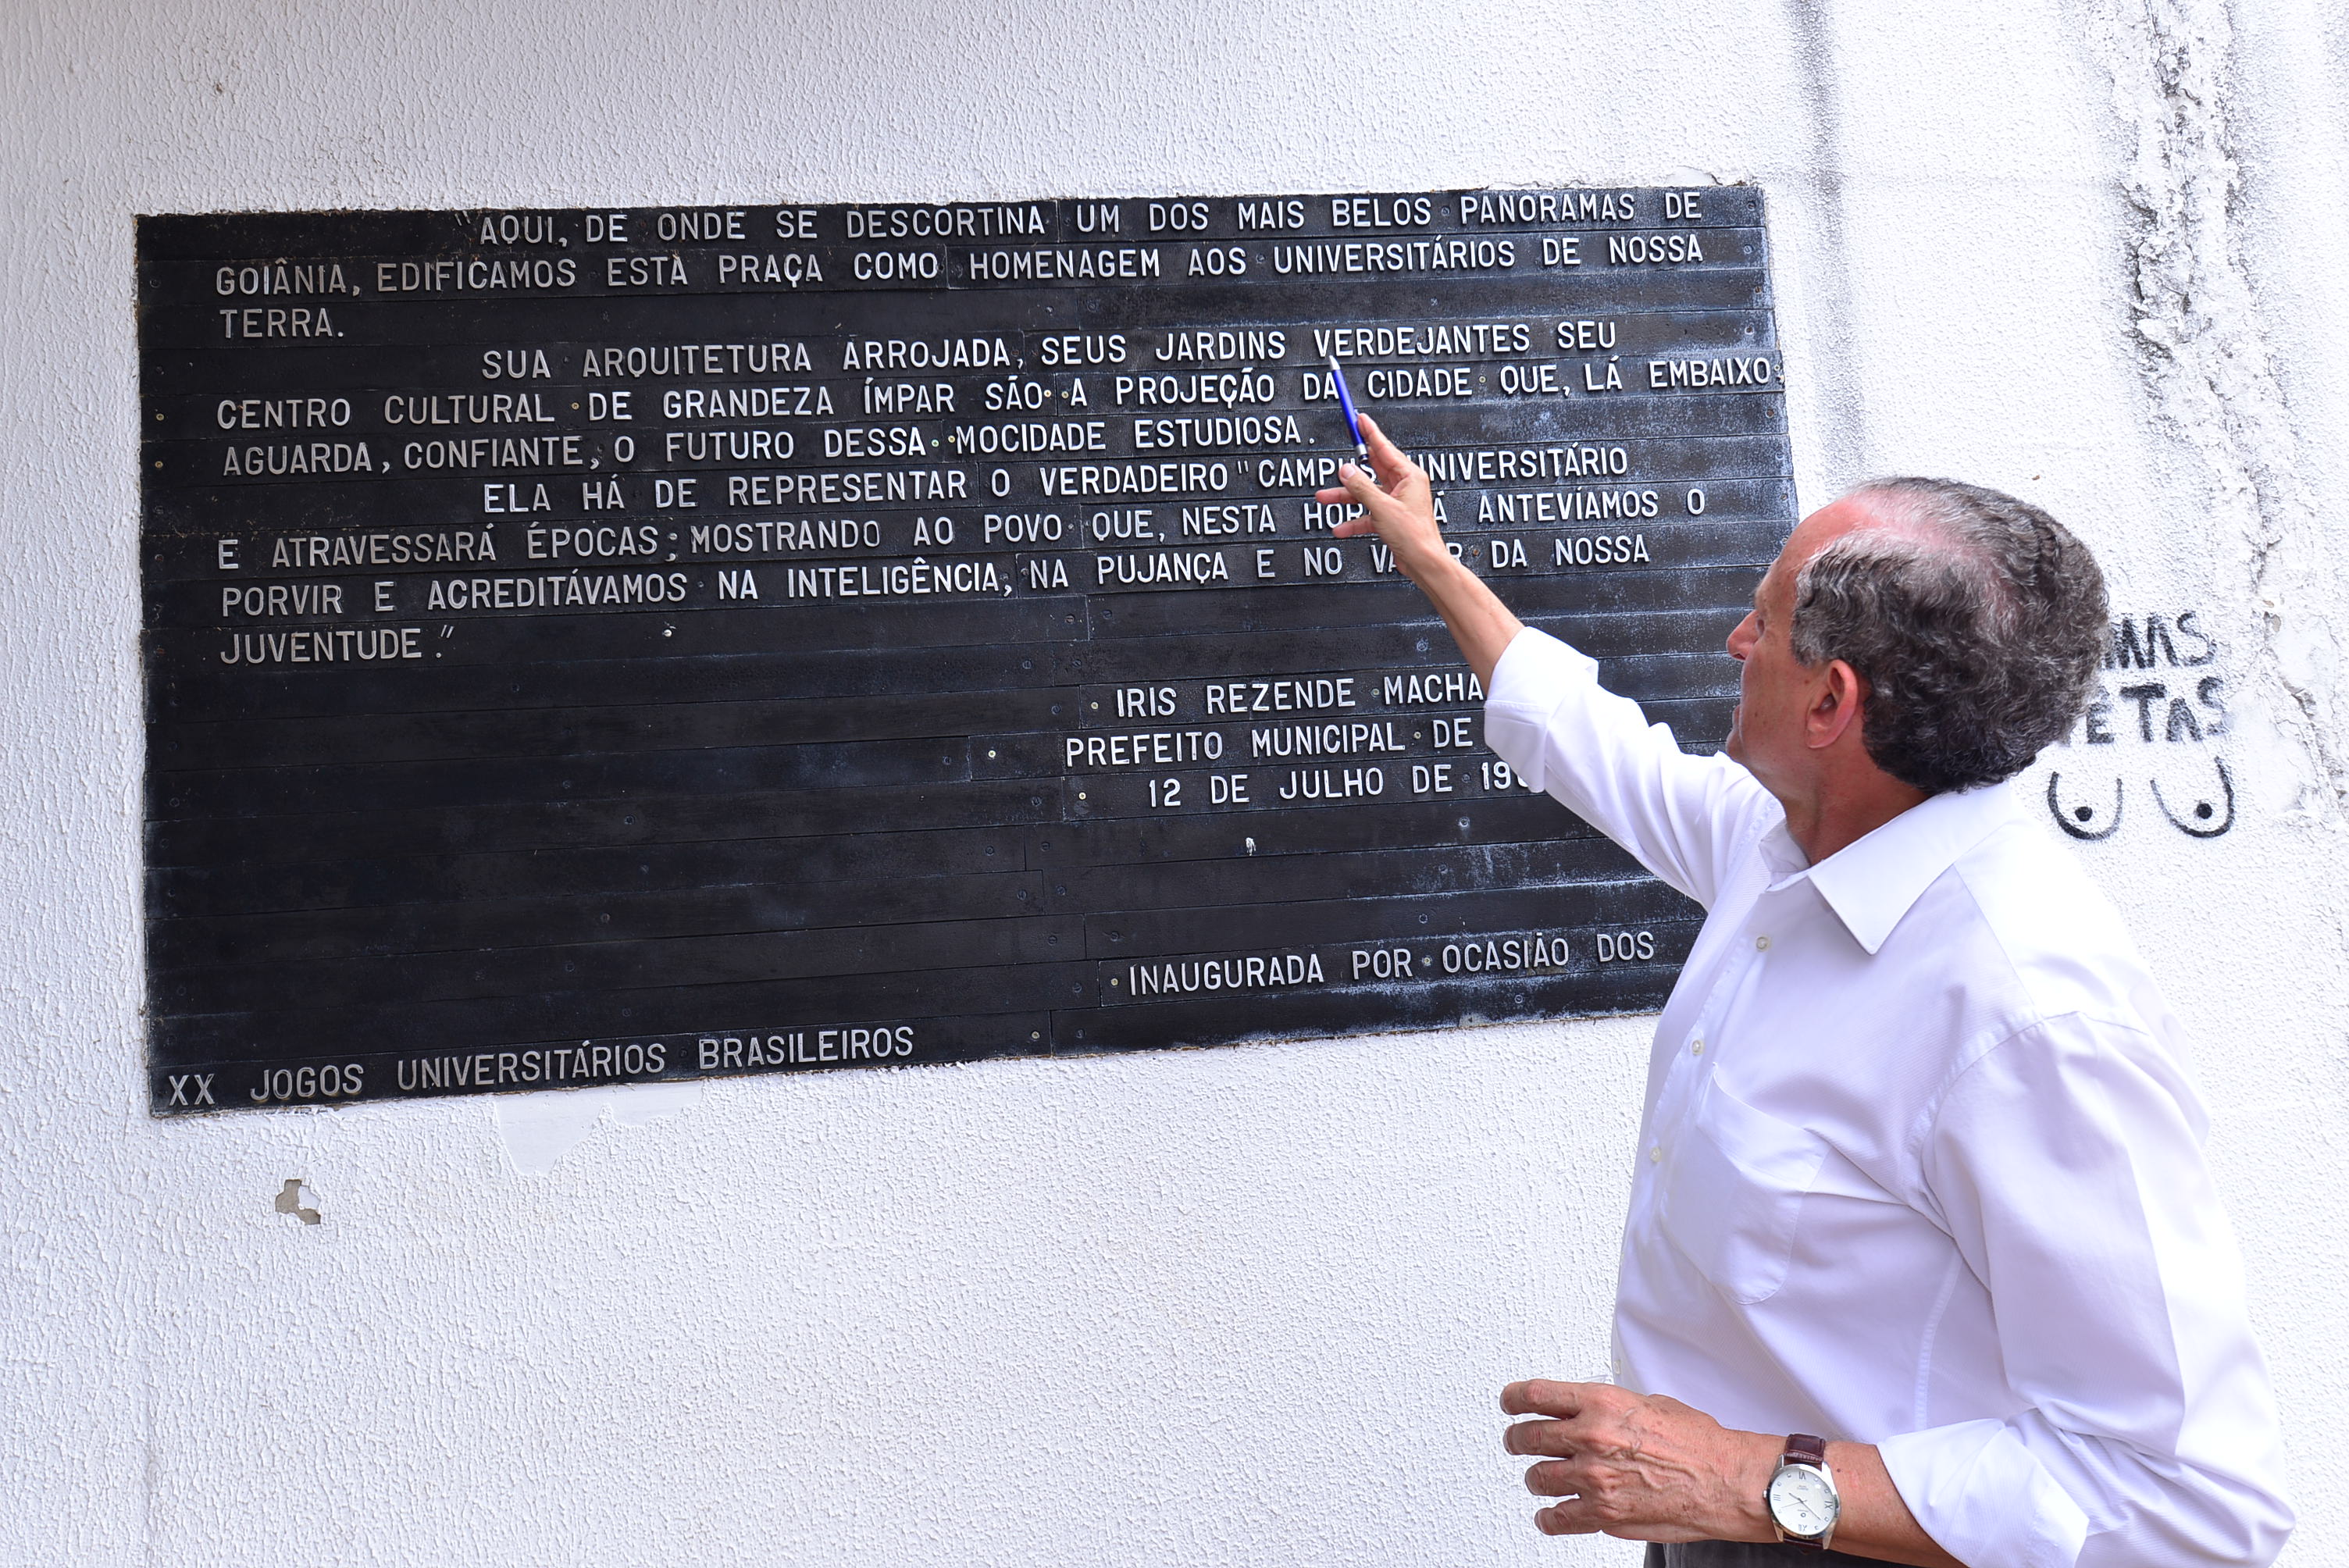 "AQUI, DE ONDE SE DESCORTINA UM DOS MAIS BELOS PANORAMAS DE
GOIÂNIA, EDIFICAMOS ESTA PRAÇA COMO HOMENAGEM AOS UNIVERSITÁRIOS DE NOSSA
TERRA.
SUA ARQUITETURA ARROJADA, SEUS JARDINS VERDEJANTES SEU
CENTRO CULTURAL DE GRANDEZA ÍMPAR SÃO A PROJEÇÃO DA CIDADE QUE, LÁ EMBAIXO
AGUARDA, CONFIANTE, O FUTURO DESSA MOCIDADE ESTUDIOSA.
ELA HÁ DE REPRESENTAR O VERDADEIRO "CAMPUS UNIVERSITÁRIO
E ATRAVESSARÁ ÉPOCAS; MOSTRANDO AO POVO QUE, NESTA ANTEVÍAMOS O
PORVIR E ACREDITÁVAMOS NA INTELIGÊNCIA, NA PUJANÇA E NO DA NOSSA
JUVENTUDE."
IRIS REZENDE
PREFEITO MUNICIPAL DE
12 DE JULHO DE
INAUGURADA POR OCASIÃO DOS
XX JOGOS UNIVERSITÁRIOS BRASILEIROS